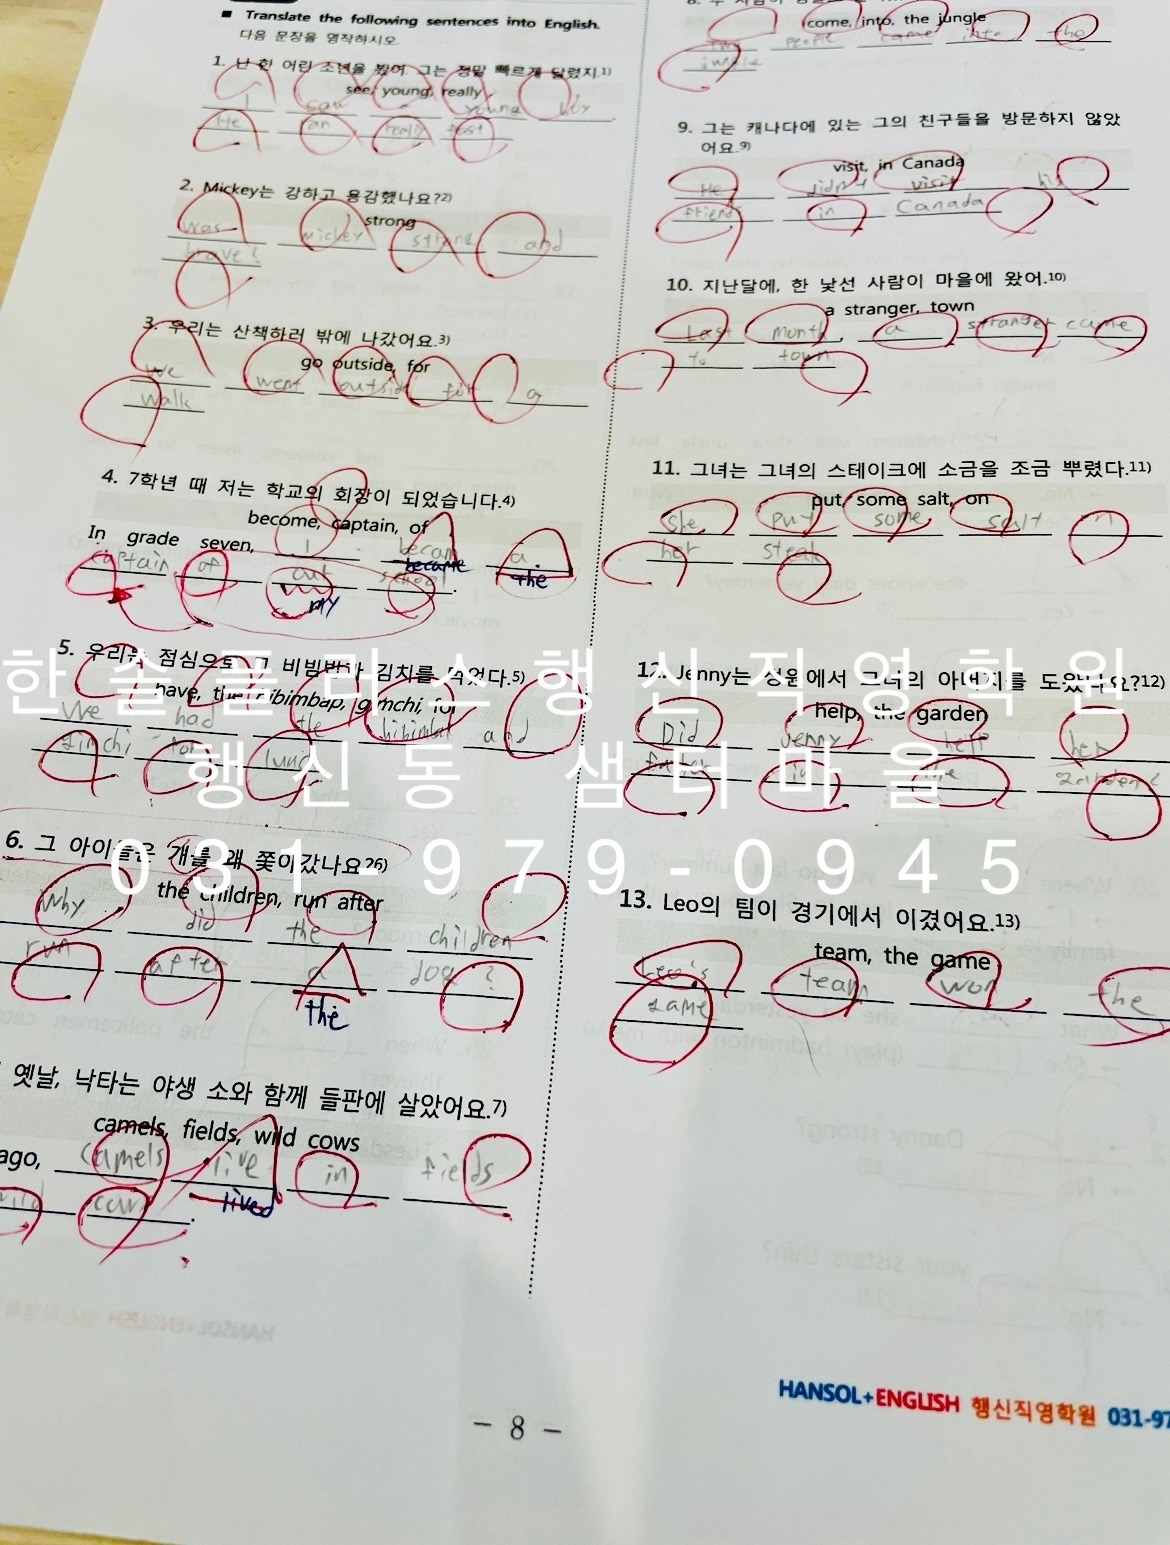 ■ Translate the following sentences into English.
다음 문장을 영작하시오
1. 난 한 어린 소년을 봤어. 그는 정말 빠르게 달렸지.1)
see, young, really
I saw a young boy.
He ran really fast
2. Mickey는 강하고 용감했나요?2)
strong
was mickey strong and
brave?
3. 우리는 산책하러 밖에 나갔어요.3)
go outside, for
We went outside for a
walk
4. 7학년 때 저는 학교의 회장이 되었습니다.4)
become, captain, of
In grade seven, I becam a
became the
captain of our school.
my
5. 우리는 점심으로 그 비빔밥과 김치를 먹었다.5)
have, the bibimbap, gimchi, for
We had the bibimbab and
gimchi for lunch
6. 그 아이들은 개를 왜 쫓이갔나요?6)
the children, run after
Why did the children
run after a dog?
the
옛날, 낙타는 야생 소와 함께 들판에 살았어요.7)
camels, fields, wild cows
ago, camels live in fields
lived
wild cows.
come, into, the jungle
people came into the
jungle
9. 그는 캐나다에 있는 그의 친구들을 방문하지 않았
어요.9)
visit, in Canada
He didn't visit his
friends in Canada
10. 지난달에, 한 낯선 사람이 마을에 왔어.10)
a stranger, town
Last month, a stranger came
to town
11. 그녀는 그녀의 스테이크에 소금을 조금 뿌렸다.11)
put, some salt, on
she put some salt on
her steak
12. Jenny는 정원에서 그녀의 아버지를 도왔나요?12)
help, the garden
Did Jenny help her
father in the garden?
13. Leo의 팀이 경기에서 이겼어요.13)
team, the game
Leo's team won the
game
한솔플러스행신직영학원
행신동 샘터마을
031-979-0945
- 8 -
HANSOL+ENGLISH 행신직영학원 031-97